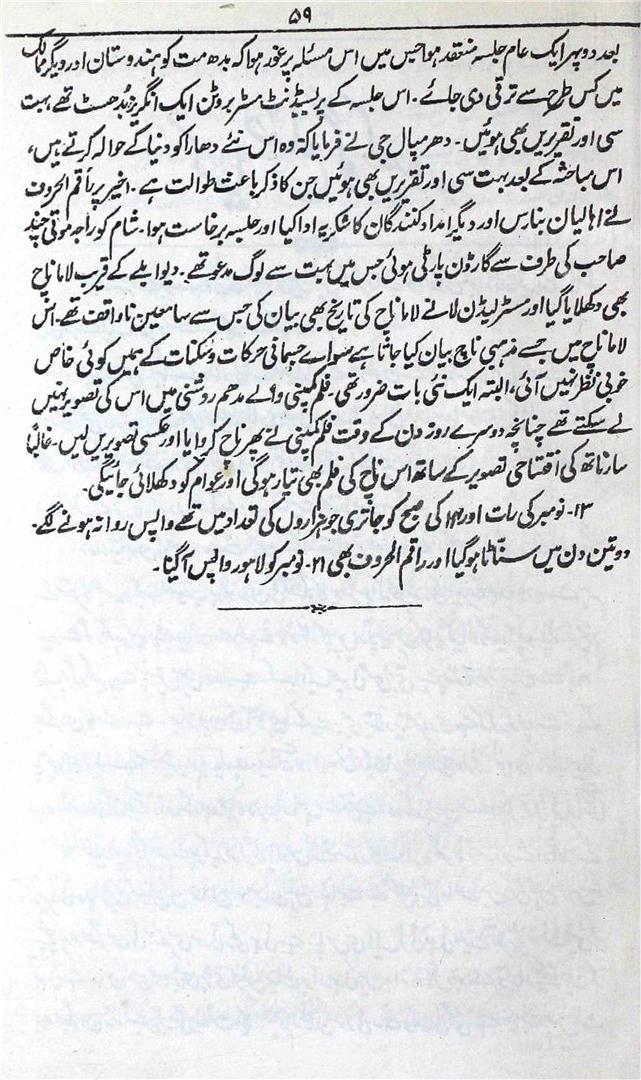 ۵۹
بعد دوپہر ایک عام جلسہ منعقد ہوا جس میں اس مسئلہ پر غور ہوا کہ بدھ مت کو ہندوستان اور دیگر ممالک
میں کس طرح سے ترقی دی جائے۔ اس جلسہ کے پریسیڈنٹ مسٹر بروٹن ایک انگریز بُدھسٹ تھے بہت
سی اور تقریریں بھی ہوئیں۔ دھرمپال جی نے فرمایا کہ وہ اس نئے دھارا کو دنیا کے حوالہ کرتے ہیں،
اس مباحثہ کے بعد بہت سی اور تقریریں بھی ہوئیں جن کا ذکر باعث طوالت ہے۔ اخیر پر راقم الحروف
نے اہالیان بنارس اور دیگر امداد کنندگان کا شکریہ ادا کیا اور جلسہ برخاست ہوا۔ شام کو راجہ موتی چند
صاحب کی طرف سے گارڈن پارٹی ہوئی جس میں بہت سے لوگ مدعو تھے۔ دیوا بلے کے قریب لاما ناچ
بھی دکھلایا گیا اور مسٹر لیڈن لا نے لاما ناچ کی تاریخ بھی بیان کی جس سے سامعین ناواقف تھے۔ اس
لاما ناچ میں جسے مذہبی ناچ بیان کیا جاتا ہے سوائے جسمانی حرکات و سکنات کے ہمیں کوئی خاص
خوبی نظر نہیں آئی، البتہ ایک نئی بات ضرور تھی۔ فلم کمپنی والے مدھم روشنی میں اس کی تصویر نہیں
لے سکتے تھے چنانچہ دوسرے روز دن کے وقت فلم کمپنی نے پھر ناچ کروایا اور عکسی تصویریں لیں۔ غالباً
سارناتھ کی افتتاحی تصویر کے ساتھ اس ناچ کی فلم بھی تیار ہوگی اور عوام کو دکھلائی جائیگی۔
۱۳۔ نومبر کی رات اور ۱۴ کی صبح کو جاتری جو ہزاروں کی تعداد میں تھے واپس روانہ ہونے لگے۔
دو تین دن میں سناٹا ہو گیا اور راقم الحروف بھی ۲۱۔ نومبر کو لاہور واپس آ گیا۔